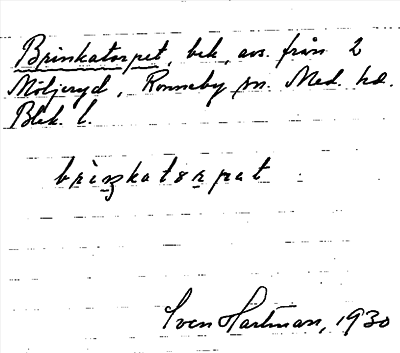 Brinkatorpet, bek, avs. från 2
Möljeryd, Ronneby sn. Med. hd.
Blek. l.
brìnkatorpat
Sven Hartman, 1930